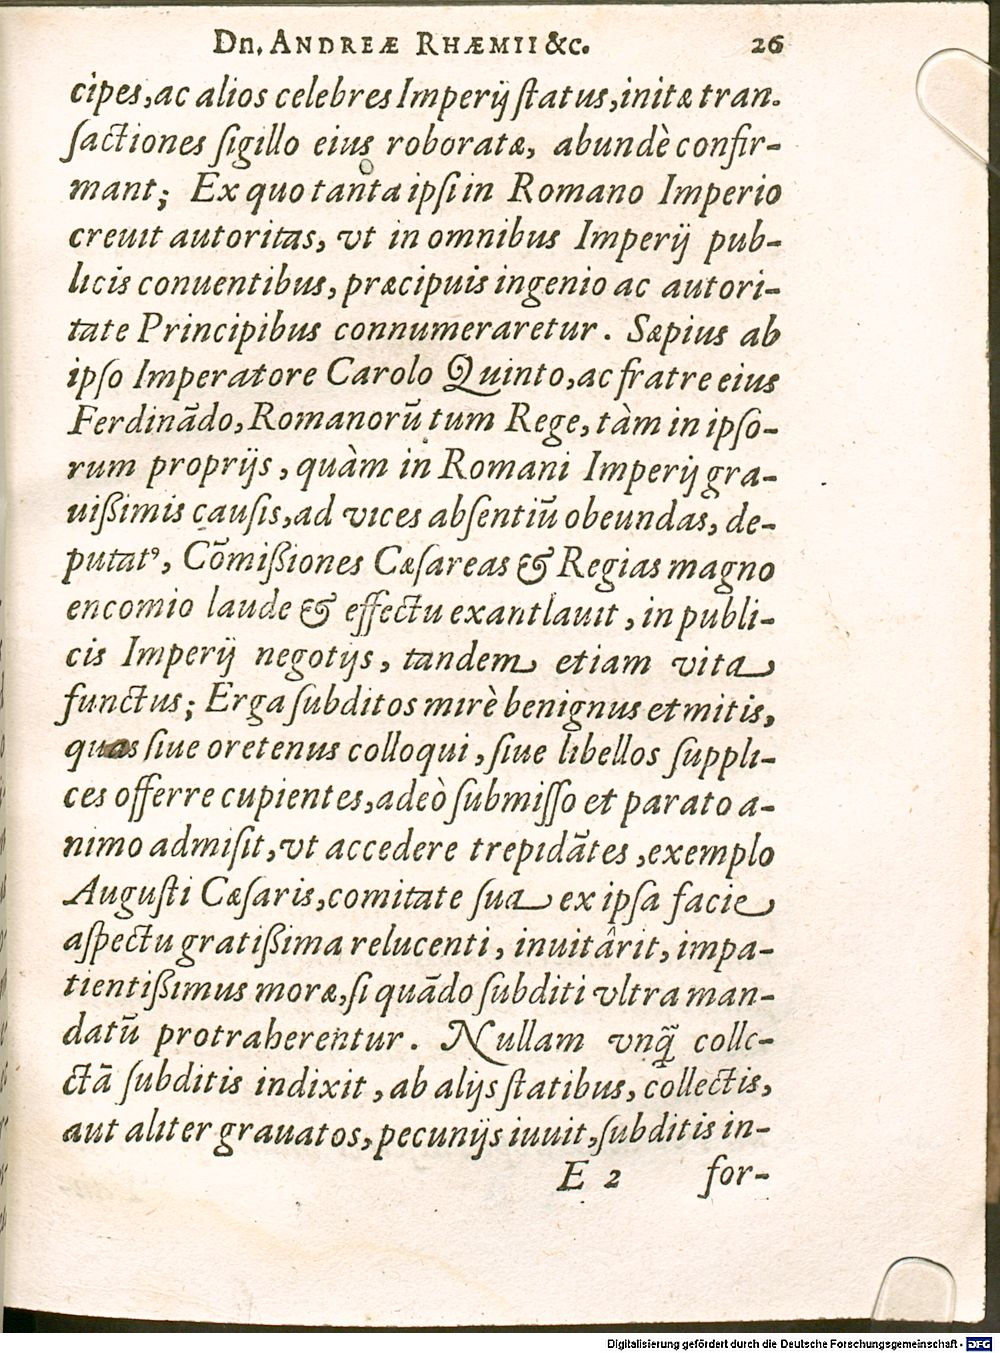 Dn. ANDREÆ RHÆMII &c. 26
cipes, ac alios celebres Imperij ſtatus, initæ tran-
ſactiones ſigillo eius roboratæ, abundè confir-
mant; Ex quo tanta ipſi in Romano Imperio
creuit autoritas, vt in omnibus Imperij pub-
licis conuentibus, præcipuis ingenio ac autori-
tate Principibus connumeraretur. Sæpius ab
ipſo Imperatore Carolo Quinto, ac fratre eius
Ferdinãdo, Romanorũ tum Rege, tàm in ipſo-
rum proprijs, quàm in Romani Imperij gra-
uißimis cauſis, ad vices abſentiũ obeundas, de-
putatꝰ, Cõmißiones Cæſareas & Regias magno
encomio laude & effectu exantlauit, in publi-
cis Imperij negotijs, tandem etiam vita
functus; Erga ſubditos mirè benignus et mitis,
quos ſiue oretenus colloqui, ſiue libellos ſuppli-
ces offerre cupientes, adeò ſubmiſſo et parato a-
nimo admiſit, vt accedere trepidãtes, exemplo
Auguſti Cæſaris, comitate ſua ex ipſa facie
aſpectu gratißima relucenti, inuitârit, impa-
tientißimus moræ, ſi quãdo ſubditi vltra man-
datũ protraherentur. Nullam vnq̃ colle-
ctã ſubditis indixit, ab alijs ſtatibus, collectis,
aut aliter grauatos, pecunijs iuuit, ſubditis in-
E 2 for-
Digitalisierung gefördert durch die Deutsche Forschungsgemeinschaft - DFG